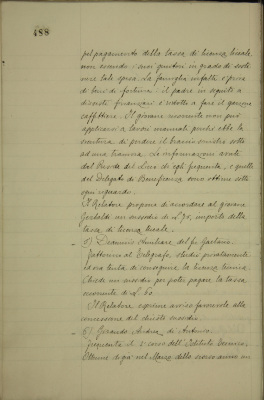 488
pel pagamento della tassa di licenza liceale,
non essendo i suoi genitori in grado di soste
nere tale spesa. La famiglia infatti è priva
di beni di fortuna: il padre in seguito a
dissesti finanziari è ridotto a fare il garzone
caffettiere. Il giovane ricorrente non può
applicarsi a lavori manuali perchè ebbe la
sventura di perdere il braccio sinistro sotto
ad una tramvia. Le informazioni avute
dal Preside del Liceo da egli frequenta, e quelle
del Delegato di Beneficenza sono ottime sotto
ogni riguardo.
Il Relatore propone di accordare al giovane
un sussidio di L. 75, importo della
tassa di licenza liceale.
5) Domenico di Gaetano.
fattorino al Telegrafo, studiò privatamente
ed ora tenta di conseguire la licenza tecnica.
Chiede un sussidio per poter pagare la tassa
occorrente di L. 60.
Il Relatore esprime avviso favorevole alla
concessione del chiesto sussidio.
6) Andrea di Antonio.
frequenta il 2° corso dell'Istituto Tecnico.
Ottenne di già nel Marzo dello scorso anno un